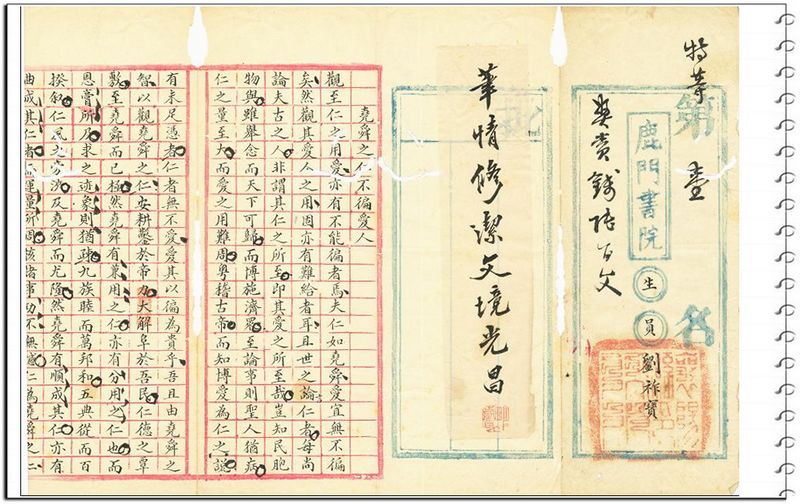 特等第壹名
鹿門書院
生員
劉祚寶
獎賞錢陸百文
華情修潔文境光昌
堯舜之仁不徧愛人
觀至仁之用愛亦有不能徧者焉夫仁如堯舜愛宜無不徧
矣然觀其愛人之用固亦有難給者耳且世之論仁者每尚
論夫古之人非謂其仁之所至即其愛之所至哉豈知民胞
物與雖舉念而天下可歸而博施濟眾至論事則聖人猶病
仁之量至大而愛之用難周粵稽古帝而知博愛為仁之說
有未足憑者仁者無不愛愛其以徧為貴乎吾且由堯舜之
智以觀堯舜之仁安耕鑿於帝力大解阜於吾民仁德之覃
敷至堯舜而已極然堯舜有兼用之仁亦有分用之仁也而
恩膏所及求之迹象則猶疎九族睦而萬邦和五典從而百
揆叙仁風之旁洽及堯舜而尤隆然堯舜有順成其仁亦有
曲成其仁者